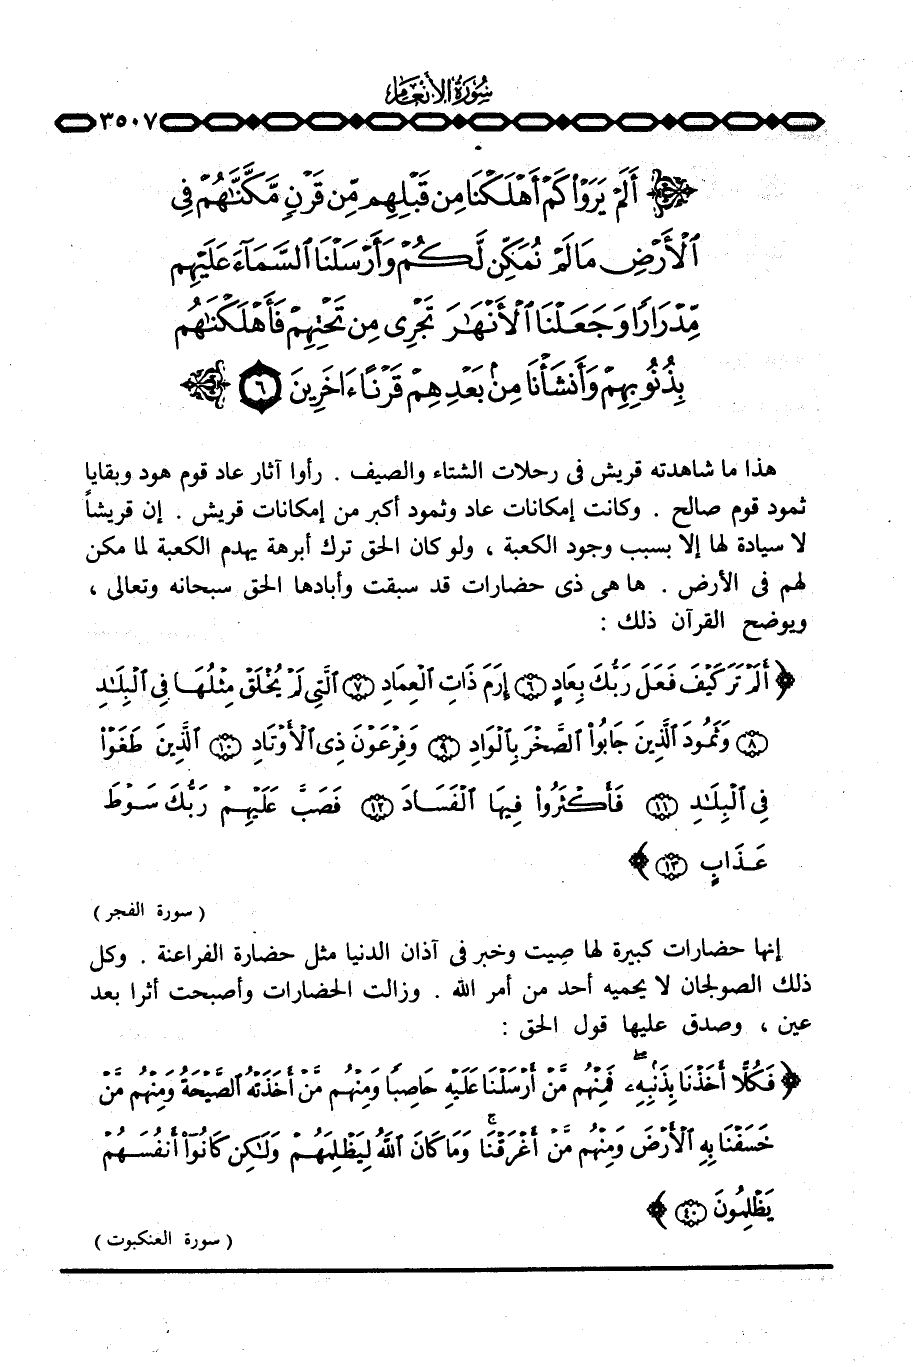 سُورَةُ الأَنْعَامِ
٣٥٠٧
أَلَمْ يَرَوْا۟ كَمْ أَهْلَكْنَا مِن قَبْلِهِم مِّن قَرْنٍ مَّكَّنَّٰهُمْ فِى
ٱلْأَرْضِ مَا لَمْ نُمَكِّن لَّكُمْ وَأَرْسَلْنَا ٱلسَّمَآءَ عَلَيْهِم
مِّدْرَارًا وَجَعَلْنَا ٱلْأَنْهَٰرَ تَجْرِى مِن تَحْتِهِمْ فَأَهْلَكْنَٰهُم
بِذُنُوبِهِمْ وَأَنشَأْنَا مِنۢ بَعْدِهِمْ قَرْنًا ءَاخَرِينَ ٦
هذا ما شاهدته قريش فى رحلات الشتاء والصيف . رأوا آثار عاد قوم هود وبقايا
ثمود قوم صالح . وكانت إمكانات عاد وثمود أكبر من إمكانات قريش . إن قريشاً
لا سيادة لها إلا بسبب وجود الكعبة ، ولو كان الحق ترك أبرهة يهدم الكعبة لما مكن
لهم فى الأرض . ها هى ذى حضارات قد سبقت وأبادها الحق سبحانه وتعالى ،
ويوضح القرآن ذلك :
﴿ أَلَمْ تَرَ كَيْفَ فَعَلَ رَبُّكَ بِعَادٍ ٦ إِرَمَ ذَاتِ ٱلْعِمَادِ ٧ ٱلَّتِى لَمْ يُخْلَقْ مِثْلُهَا فِى ٱلْبِلَٰدِ
٨ وَثَمُودَ ٱلَّذِينَ جَابُوا۟ ٱلصَّخْرَ بِٱلْوَادِ ٩ وَفِرْعَوْنَ ذِى ٱلْأَوْتَادِ ١٠ ٱلَّذِينَ طَغَوْا۟
فِى ٱلْبِلَٰدِ ١١ فَأَكْثَرُوا۟ فِيهَا ٱلْفَسَادَ ١٢ فَصَبَّ عَلَيْهِمْ رَبُّكَ سَوْطَ
عَذَابٍ ١٣ ﴾
( سورة الفجر )
إنها حضارات كبيرة لها صِيت وخبر فى آذان الدنيا مثل حضارة الفراعنة . وكل
ذلك الصولجان لا يحميه أحد من أمر الله . وزالت الحضارات وأصبحت أثرا بعد
عين ، وصدق عليها قول الحق :
﴿ فَكُلًّا أَخَذْنَا بِذَنۢبِهِۦ ۖ فَمِنْهُم مَّنْ أَرْسَلْنَا عَلَيْهِ حَاصِبًا وَمِنْهُم مَّنْ أَخَذَتْهُ ٱلصَّيْحَةُ وَمِنْهُم مَّنْ
خَسَفْنَا بِهِ ٱلْأَرْضَ وَمِنْهُم مَّنْ أَغْرَقْنَا ۚ وَمَا كَانَ ٱللَّهُ لِيَظْلِمَهُمْ وَلَٰكِن كَانُوٓا۟ أَنفُسَهُمْ
يَظْلِمُونَ ٤٠ ﴾
( سورة العنكبوت )